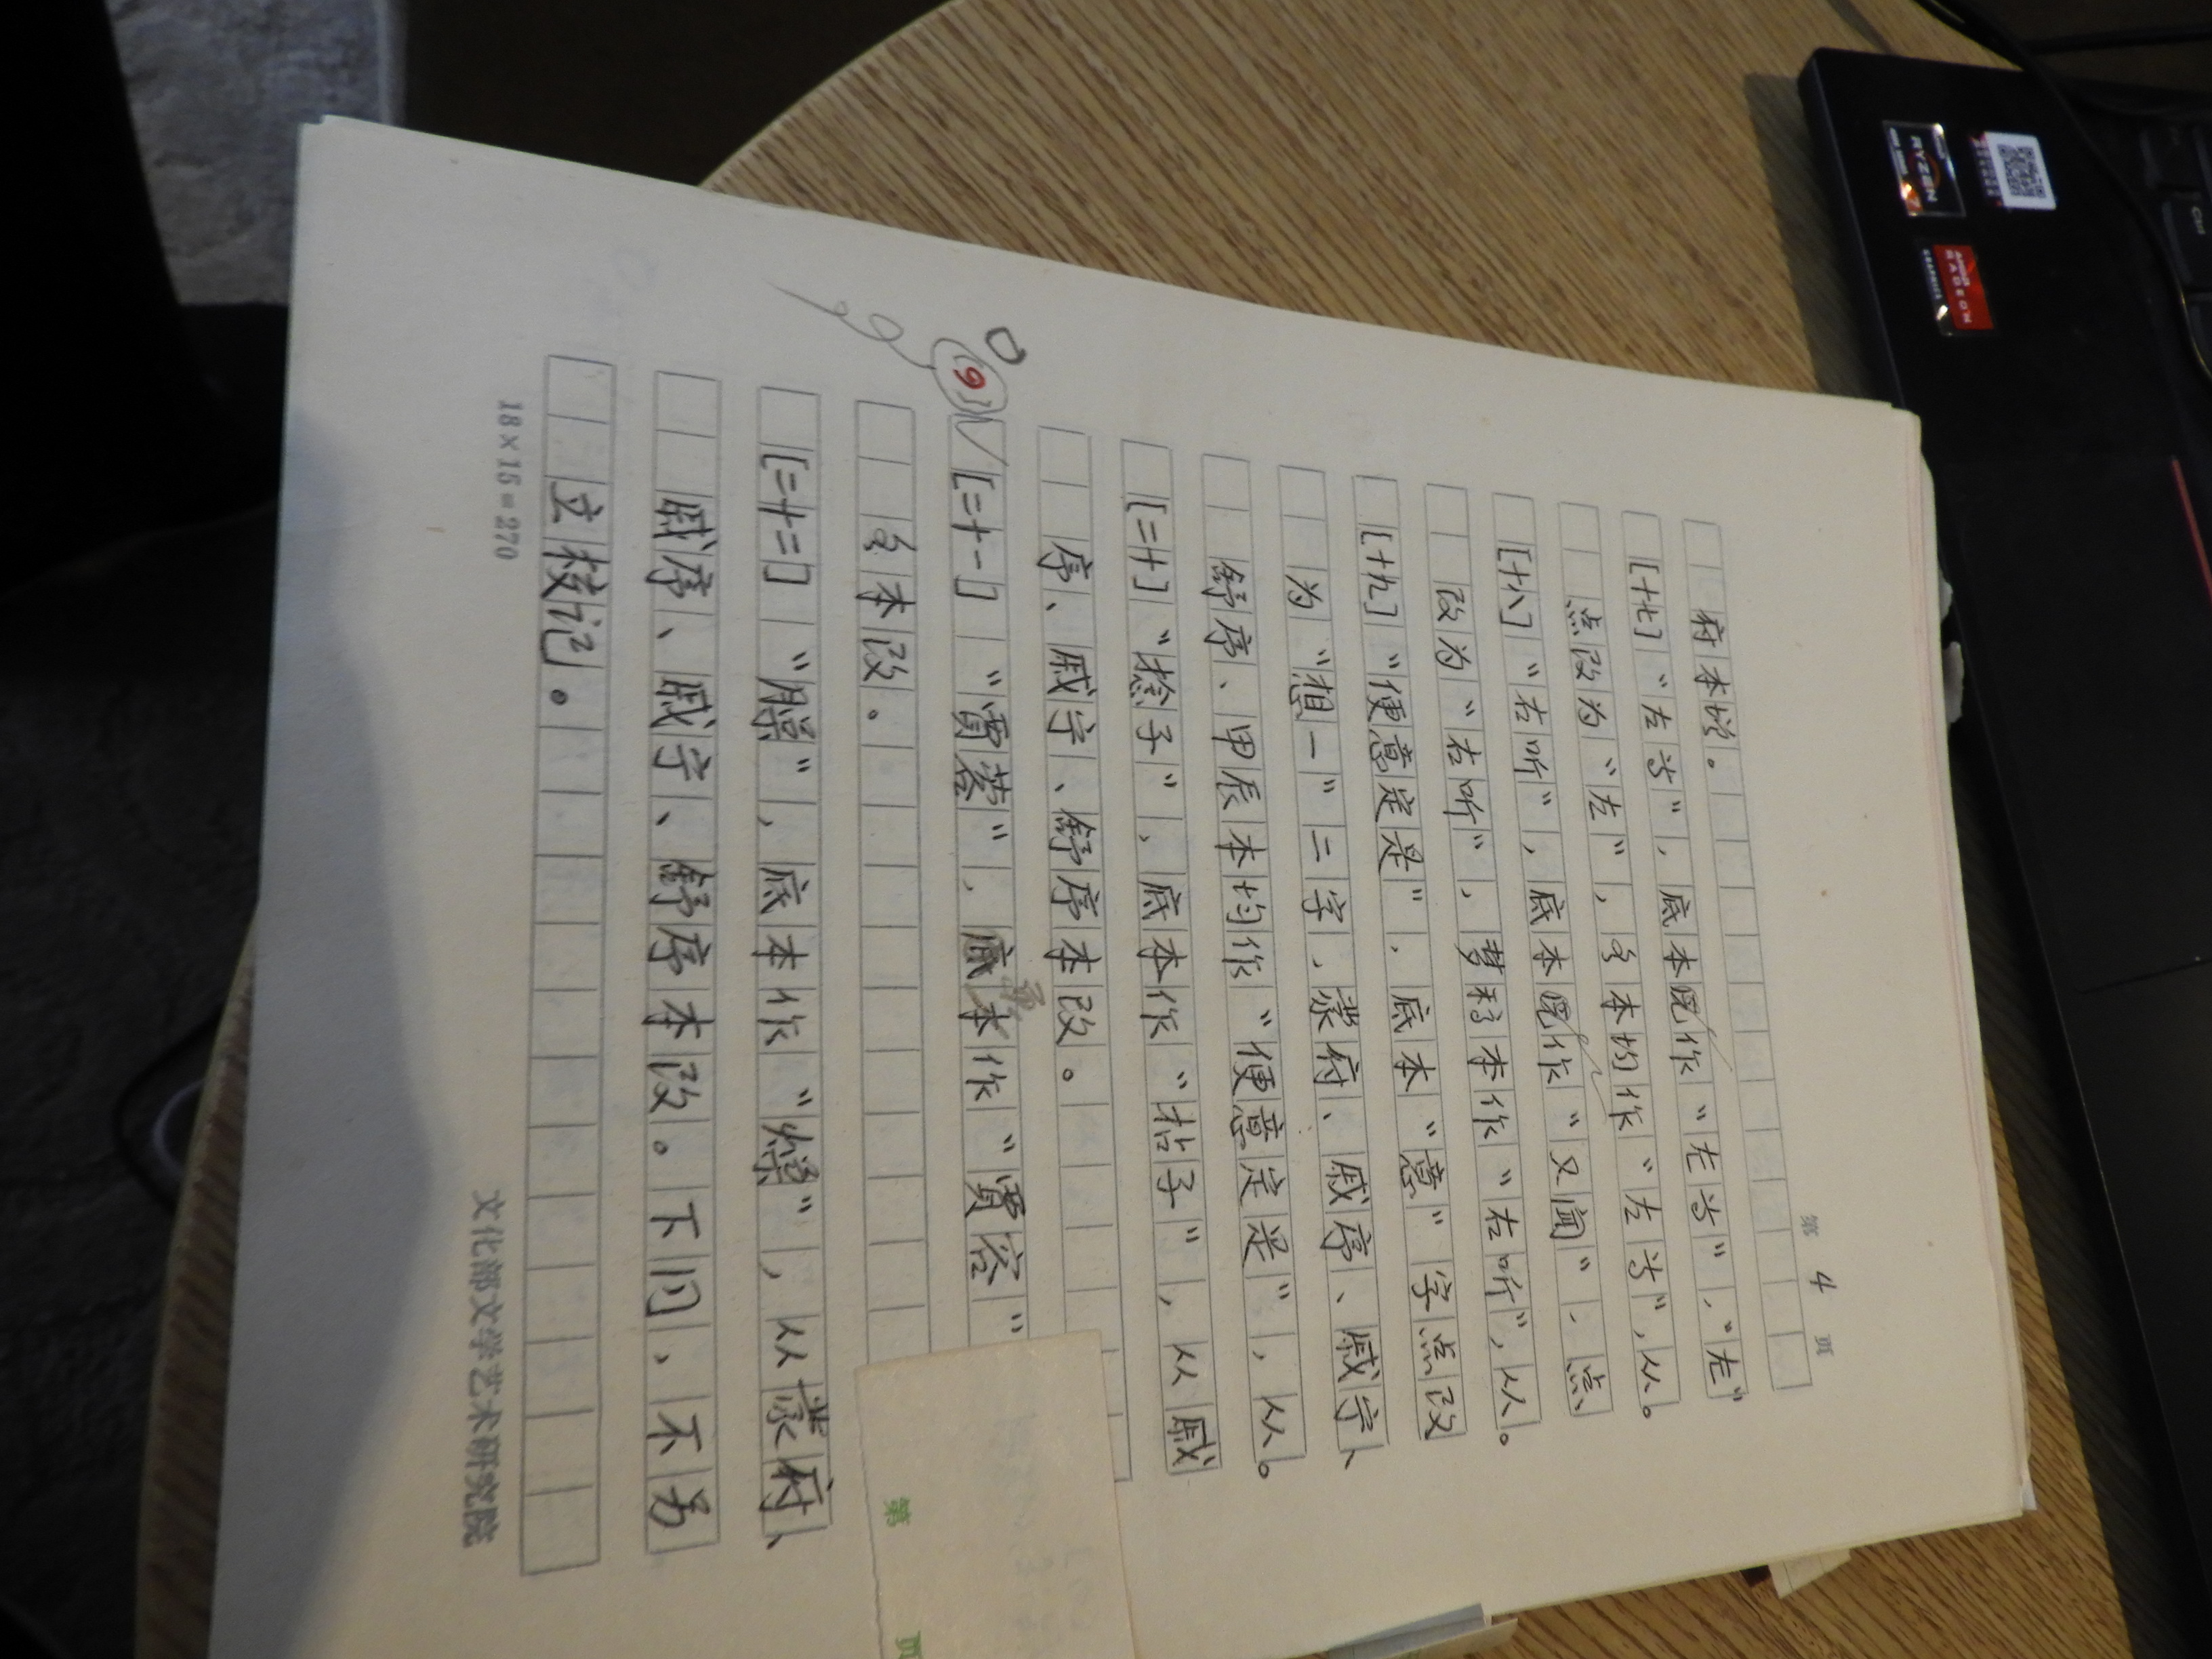 第 4 页
府本增。
[十七]“左当”，底本既作“尤当”，“尤”
点改为“左”，各本均作“左当”，从。
[十八]“右听”，底本既作“又闻”，点
改为“右听”，梦稿本作“右听”，从。
[十九]“便意定是”，底本“意”字点改
为“想一”二字，蒙府、戚序、戚宁、
舒序、甲辰本均作“便意定是”，从。
[二十]“捻子”，底本作“拈子”，从戚
序、戚宁、舒序本改。
(9)
[二十一]“贾蓉”，底本作“贾容”
各本改。
[二十二]“臊”，底本作“燥”，从蒙府、
戚序、戚宁、舒序本改。下同，不另
立校记。
18×15=270
文化部文学艺术研究院
第 页
RYZEN
AMD
RADEON
GRAPHICS
Ctrl